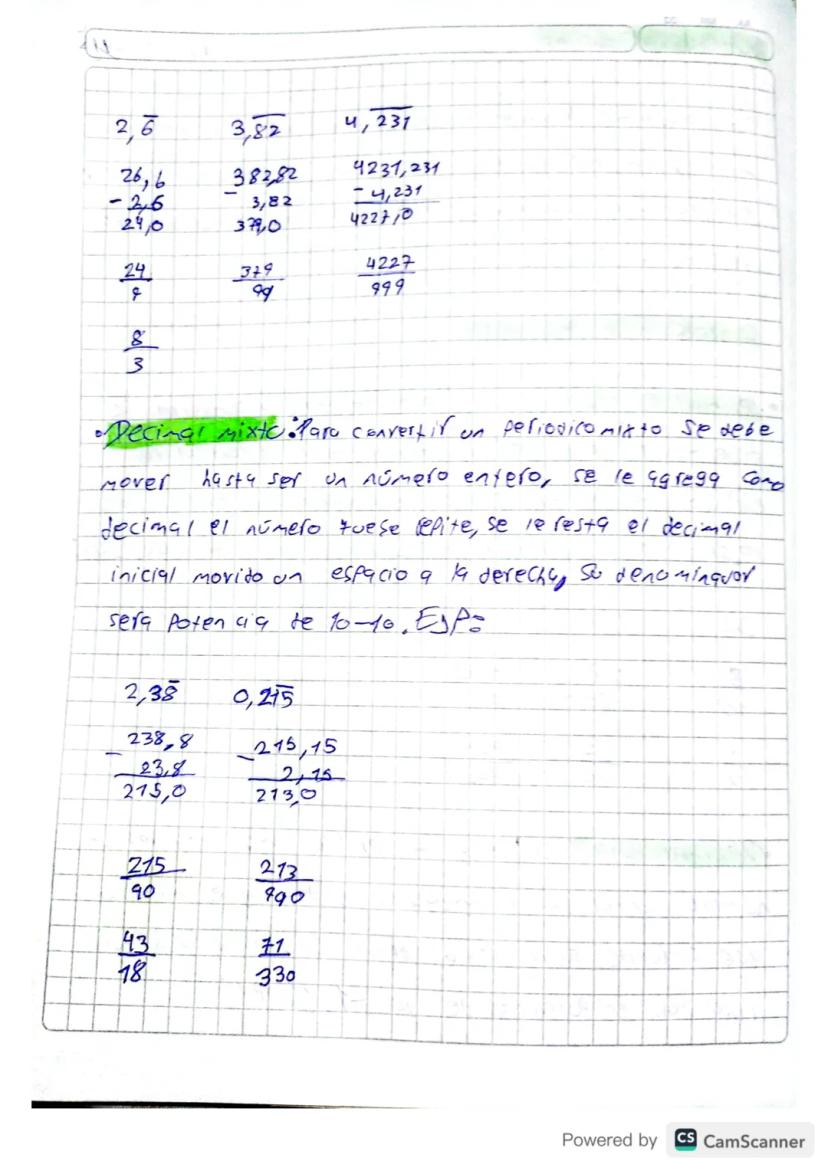 2,6̅ 3,8̅2̅ 4,2̅3̅1̅
26,6 382,82 4231,231
- 2,6 - 3,82 - 4,231
24,0 379,0 4227,0
24 379 4227
9 99 999
8
3
• Decimal mixto: Para convertir un periodico mixto se debe
mover hasta ser un número entero, se le agrega como
decimal el número que se repite, se le resta el decimal
inicial movido un espacio a la derecha, su denominador
sera potencia de 10-10. Ejp:
2,38̅ 0,21̅5̅
- 238,8 - 215,15
23,8 2,15
215,0 213,0
215 213
90 990
43 71
18 330
Powered by CS CamScanner